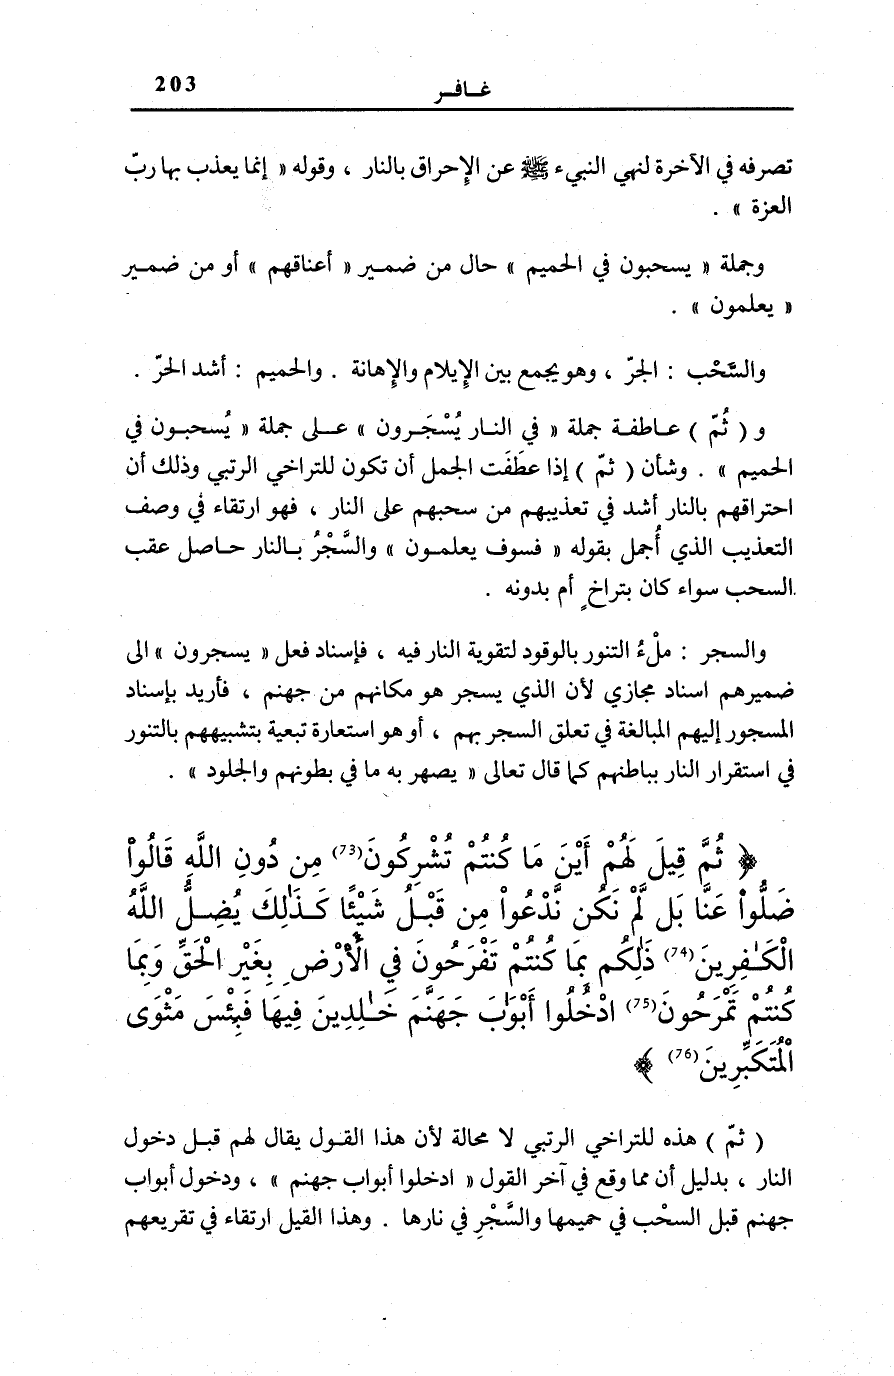 203
غـافـر
تصرفه في الآخرة لنهي النبيء ﷺ عن الإحراق بالنار ، وقوله « إنما يعذب بها ربّ
العزة » .
وجملة « يسحبون في الحميم » حال من ضمـير « أعناقهم » أو من ضمـير
« يعلمون » .
والسَّحْب : الجرّ ، وهو يجمع بين الإيلام والإهانة . والحميم : أشد الحرّ .
و ( ثُمّ ) عـاطفـة جملة « في النـار يُسْجَـرون » عـلى جملة « يُسحبـون في
الحميم » . وشأن ( ثمّ ) إذا عطَفَت الجمل أن تكون للتراخي الرتبي وذلك أن
احتراقهم بالنار أشد في تعذيبهم من سحبهم على النار ، فهو ارتقاء في وصف
التعذيب الذي أُجمل بقوله « فسوف يعلمـون » والسَّجْرُ بـالنار حـاصل عقب
السحب سواء كان بتراخٍ أم بدونه .
والسجر : ملْءُ التنور بالوقود لتقوية النار فيه ، فإسناد فعل « يسجرون » الى
ضميرهم اسناد مجازي لأن الذي يسجر هو مكانهم من جهنم ، فأريد بإسناد
المسجور إليهم المبالغة في تعلق السجر بهم ، أو هو استعارة تبعية بتشبيههم بالتنور
في استقرار النار بباطنهم كما قال تعالى « يصهر به ما في بطونهم والجلود » .
﴿ ثُمَّ قِيلَ لَهُمْ أَيْنَ مَا كُنتُمْ تُشْرِكُونَ(73) مِن دُونِ اللَّهِ قَالُواْ
ضَلُّواْ عَنَّا بَل لَّمْ نَكُن نَّدْعُواْ مِن قَبْـلُ شَيْئًا كَـذَٰلِكَ يُضِـلُّ اللَّهُ
الْكَـٰفِرِينَ(74) ذَٰلِكُم بِمَا كُنتُمْ تَفْرَحُونَ فِي الْأَرْضِ بِغَيْرِ الْحَقِّ وَبِمَا
كُنتُمْ تَمْرَحُونَ(75) ادْخُلُوا أَبْوَٰبَ جَهَنَّمَ خَـٰلِدِينَ فِيهَا فَبِئْسَ مَثْوَى
الْمُتَكَبِّرِينَ(76) ﴾
( ثمّ ) هذه للتراخي الرتبي لا محالة لأن هذا القـول يقال لهم قبـل دخول
النار ، بدليل أن مما وقع في آخر القول « ادخلوا أبواب جهنم » ، ودخول أبواب
جهنم قبل السحْب في حميمها والسَّجْرِ في نارها . وهذا القيل ارتقاء في تقريعهم